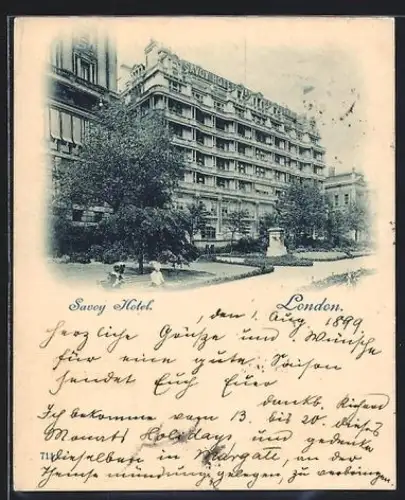 SAVOY HOTEL
Savoy Hotel.
London.
den 1. Aug 1899
Herzliche Grüsse und Wünsche
für eine gute Saison
sendet Euch Euer
dankb. Richard
Ich bekomme vom 13. bis 20. dieses
Monats Holidays und gedenke
dieselben in Margate, an der
Themse mündung gelegen, zu verbringen.
711